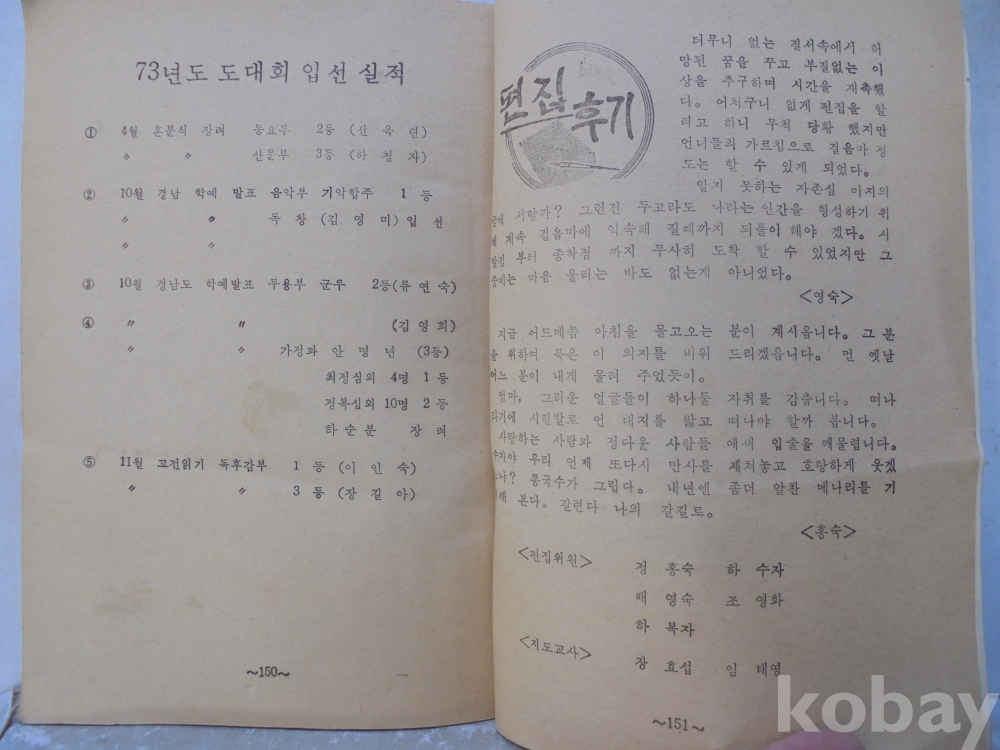 73년도 도대회 입선 실적
① 4월 혼분식 장려 동요부 2등 (신옥련)
〃 〃 산문부 3등 (하청자)
② 10월 경남 학예 발표 음악부 기악합주 1등
〃 〃 독창 (김영미) 입선
〃 〃
③ 10월 경남도 학예발표 무용부 군무 2등(류연숙)
④ 〃 〃 (김영희)
〃 〃 가정과 안명년 (3등)
최정심외 4명 1등
정복심외 10명 2등
하순분 장려
⑤ 11월 고전읽기 독후감부 1등 (이인숙)
〃 〃 3등 (장길아)
~150~
편집
후기
터무니 없는 질서속에서 허
망된 꿈을 꾸고 부질없는 이
상을 추구하며 시간을 재촉했
다. 어처구니 없게 편집을 할
려고 하니 무척 당황 했지만
언니들의 가르침으로 걸음마 정
도는 할 수 있게 되었다.
알지 못하는 자존심 이지의
궁에 서랄까? 그런건 두고라도 나라는 인간을 형성하기 위
해 계속 걸음마에 익숙해 질때까지 되풀이 해야 겠다. 시
발점 부터 종착점 까지 무사히 도착 할 수 있었지만 그
중에는 마음 울리는 바도 없는게 아니었다.
<영숙>
지금 어드메쯤 아침을 몰고오는 분이 계시옵니다. 그 분
을 위하여 묵은 이 의자를 비워 드리겠읍니다. 먼 옛날
어느 분이 내게 물려 주었듯이.
엄마, 그리운 얼굴들이 하나둘 자취를 감춥니다. 떠나
타기에 시린발로 언 대지를 밟고 떠나야 할까 봅니다.
사랑하는 사람과 정다운 사람들 애써 입술을 깨물렵니다.
수자야 우리 언제 또다시 만사를 제쳐놓고 호탕하게 웃겠
느냐? 통국수가 그립다. 내년엔 좀더 알찬 메나리를 기
대해 본다. 갈련다 나의 갈길로.
<홍숙>
<편집위원> 정홍숙 하수자
배영숙 조영화
하복자
<지도교사> 장효섭 임태영
~151~
kobay